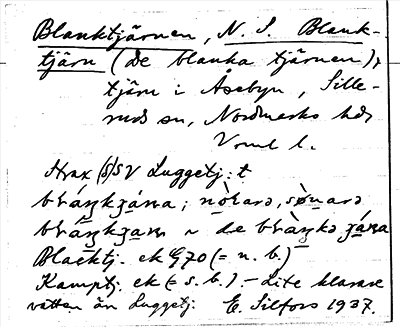 Blanktjärnen, N. S. Blank-
tjärn (de blanka tjärnen),
tjärn i Åsebyn, Sille-
ruds sn, Nordmarks hd,
Vrml l.
Hrax (S)SV Luggetj:t
nòrarə, sònarə
de
Blacktj. ek G70 (= n. b.)
Kamptj. ek (= s. b.). – Lite klarare
vatten än Luggetj. E. Silfors 1937.